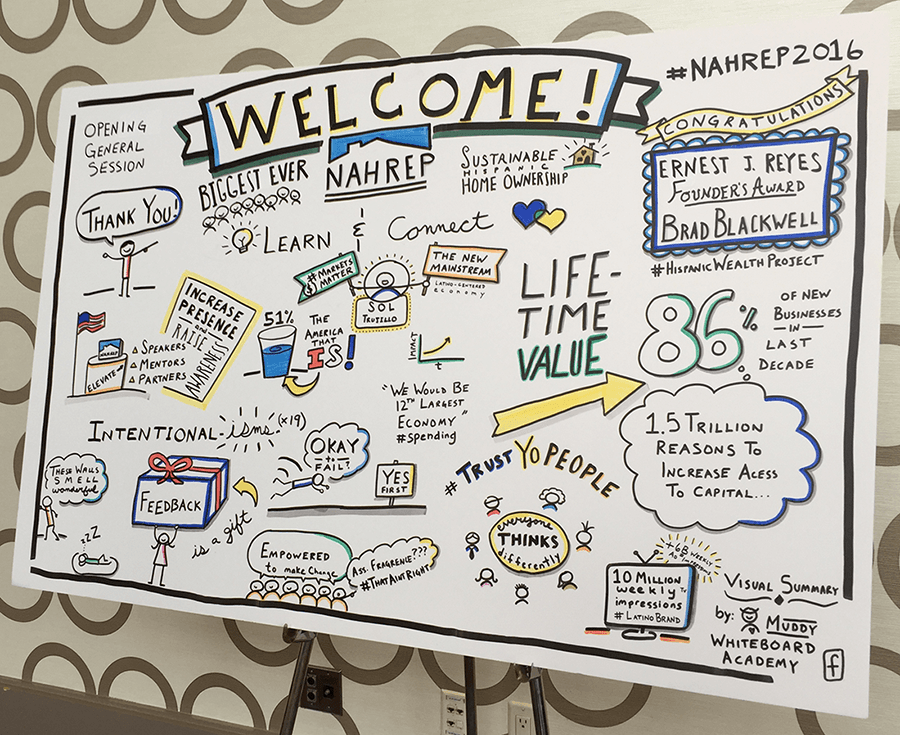 #NAHREP2016
WELCOME!
OPENING
GENERAL
SESSION
BIGGEST EVER
NAHREP
SUSTAINABLE
HISPANIC
HOME OWNERSHIP
CONGRATULATIONS
ERNEST J. REYES
FOUNDER'S AWARD
BRAD BLACKWELL
#HISPANICWEALTHPROJECT
THANK YOU!
LEARN & Connect
#MARKETS
MATTER
THE NEW
MAINSTREAM
LATINO-CENTERED
economy
SOL
TRUJILLO
INCREASE
PRESENCE
and
RAISE
AWARENESS
51%
THE
AMERICA
THAT
IS!
IMPACT
t
LIFE-
TIME
VALUE
86%
OF NEW
BUSINESSES
IN
LAST
DECADE
NAHREP
ELEVATE
SPEAKERS
MENTORS
PARTNERS
"WE WOULD BE
12TH LARGEST
ECONOMY"
#Spending
1.5 TRILLION
REASONS TO
INCREASE ACESS
TO CAPITAL...
INTENTIONAL-isms (x19)
OKAY
to
FAIL?
YES
FIRST
#TRUST YO PEOPLE
everyone
THINKS
differently
THESE WALLS
SMELL
wonderful
FEEDBACK
is a gift
zzZ
EMPOWERED
to make Change
ASS. FRAGRENCE???
#THATAINTRIGHT
+6B WEEKLY
10 MILLION
weekly TV
impressions
#LATINO BRAND
VISUAL SUMMARY
by: MUDDY
WHITEBOARD
ACADEMY
f